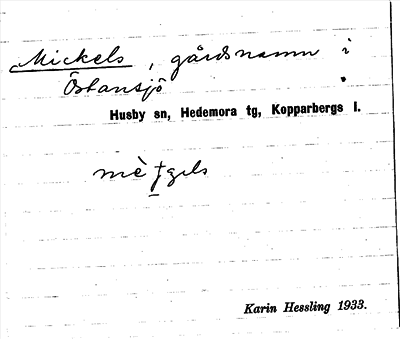 Mickels, gårdsnamn i
Östansjö.
Husby sn, Hedemora tg, Kopparbergs l.
Karin Hessling 1933.